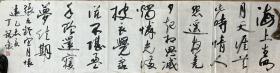 海上生明
月天涯共
此時情人
怨遙夜竟
夕起相思滅
燭憐光滿
披衣覺露
滋不堪盈
手贈還寢
夢佳期
張九齡望月懷
遠